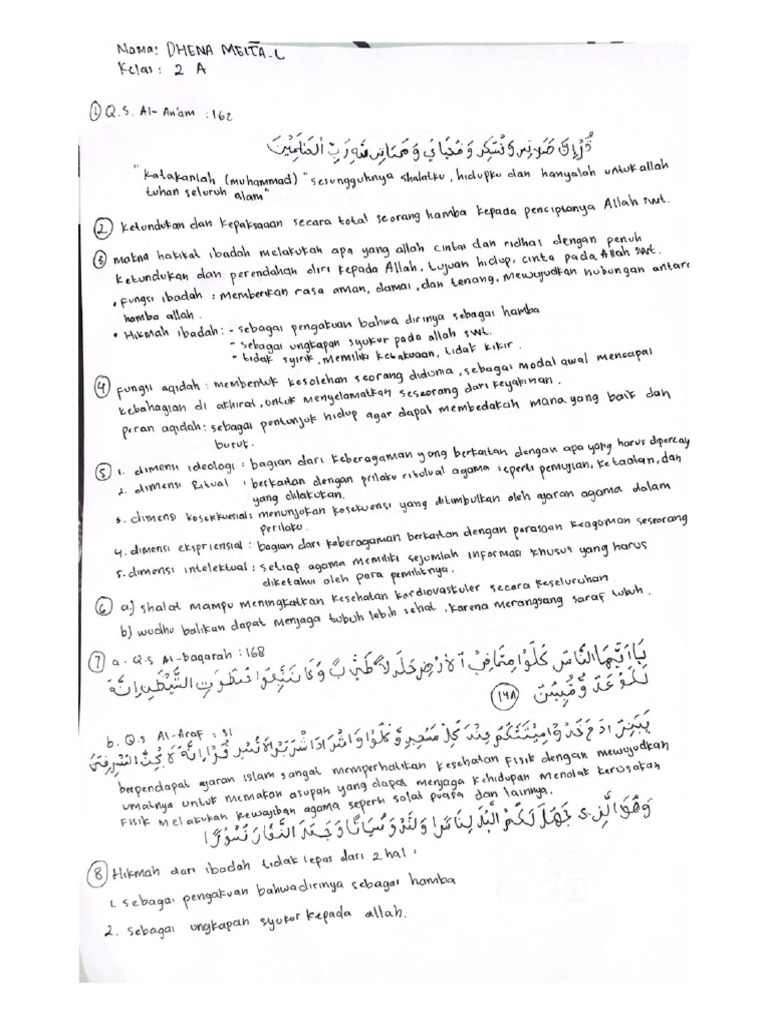 Nama: DHENA MEITA.L
Kelas: 2 A
① Q.S. Al-An'am : 162
"Katakanlah (muhammad) "sesungguhnya shalatku, hidupku dan hanyalah untuk allah
tuhan seluruh alam"
② Ketundukan dan Kepaksaan secara total seorang hamba kepada penciptanya Allah swt.
③ makna hakikat ibadah melakukan apa yang allah cintai dan ridhai dengan penuh
ketundukan dan perendahan diri kepada Allah, tujuan hidup, cinta pada Allah swt.
• Fungsi ibadah : memberikan rasa aman, damai, dan tenang, mewujudkan hubungan antara
hamba allah.
• Hikmah ibadah: - sebagai pengakuan bahwa dirinya sebagai hamba
- sebagai ungkapan syukur pada allah swt.
- tidak syirik, memiliki ketakwaan, tidak kikir.
④ fungsi aqidah : membentuk kesolehan seorang didunia, sebagai modal awal mencapai
kebahagian di akhirat, untuk menyelamatkan seseorang dari keyakinan.
peran aqidah: sebagai pentunjuk hidup agar dapat membedakah mana yang baik dan
buruk.
⑤ 1. dimensi ideologi : bagian dari keberagaman yang berkaitan dengan apa yang harus dipercay
2. dimensi Ritual : berkaitan dengan prilaku ritulual agama seperti pemujian, ketaatan, dan
yang dilakukan.
3. dimensi kosekkuesial: menunjokan kosekuensi yang ditimbulkan oleh ajaran agama dalam
perilaku.
4. dimensi ekspriensial : bagian dari keberagaman berkaitan dengan perasaan keagaman seseorang
5. dimensi intelektual : setiap agama memiliki sejumlah informasi khusus yang harus
diketahui oleh para pemiliknya.
⑥ a) shalat mampu meningkatkan kesehatan kardiovaskuler secara keseluruhan.
b) wudhu balikan dapat menjaga tubuh lebih sehat, karena merangsang saraf tubuh.
⑦ a. Q.S Al-baqarah : 168
b. Q.S Al-Araf : 31
berpendapat ajaran Islam sangat memperhatikan kesehatan fisik dengan mewujudkan
umatnya untuk memakan asupan yang dapat menjaga kehidupan menolak kerusakan
fisik melakukan kewajiban agama seperti solat puasa dan lainnya.
⑧ Hikmah dari ibadah tidak lepas dari 2 hal :
1. sebagai pengakuan bahwa dirinya sebagai hamba
2. sebagai ungkapan syukur kepada allah.